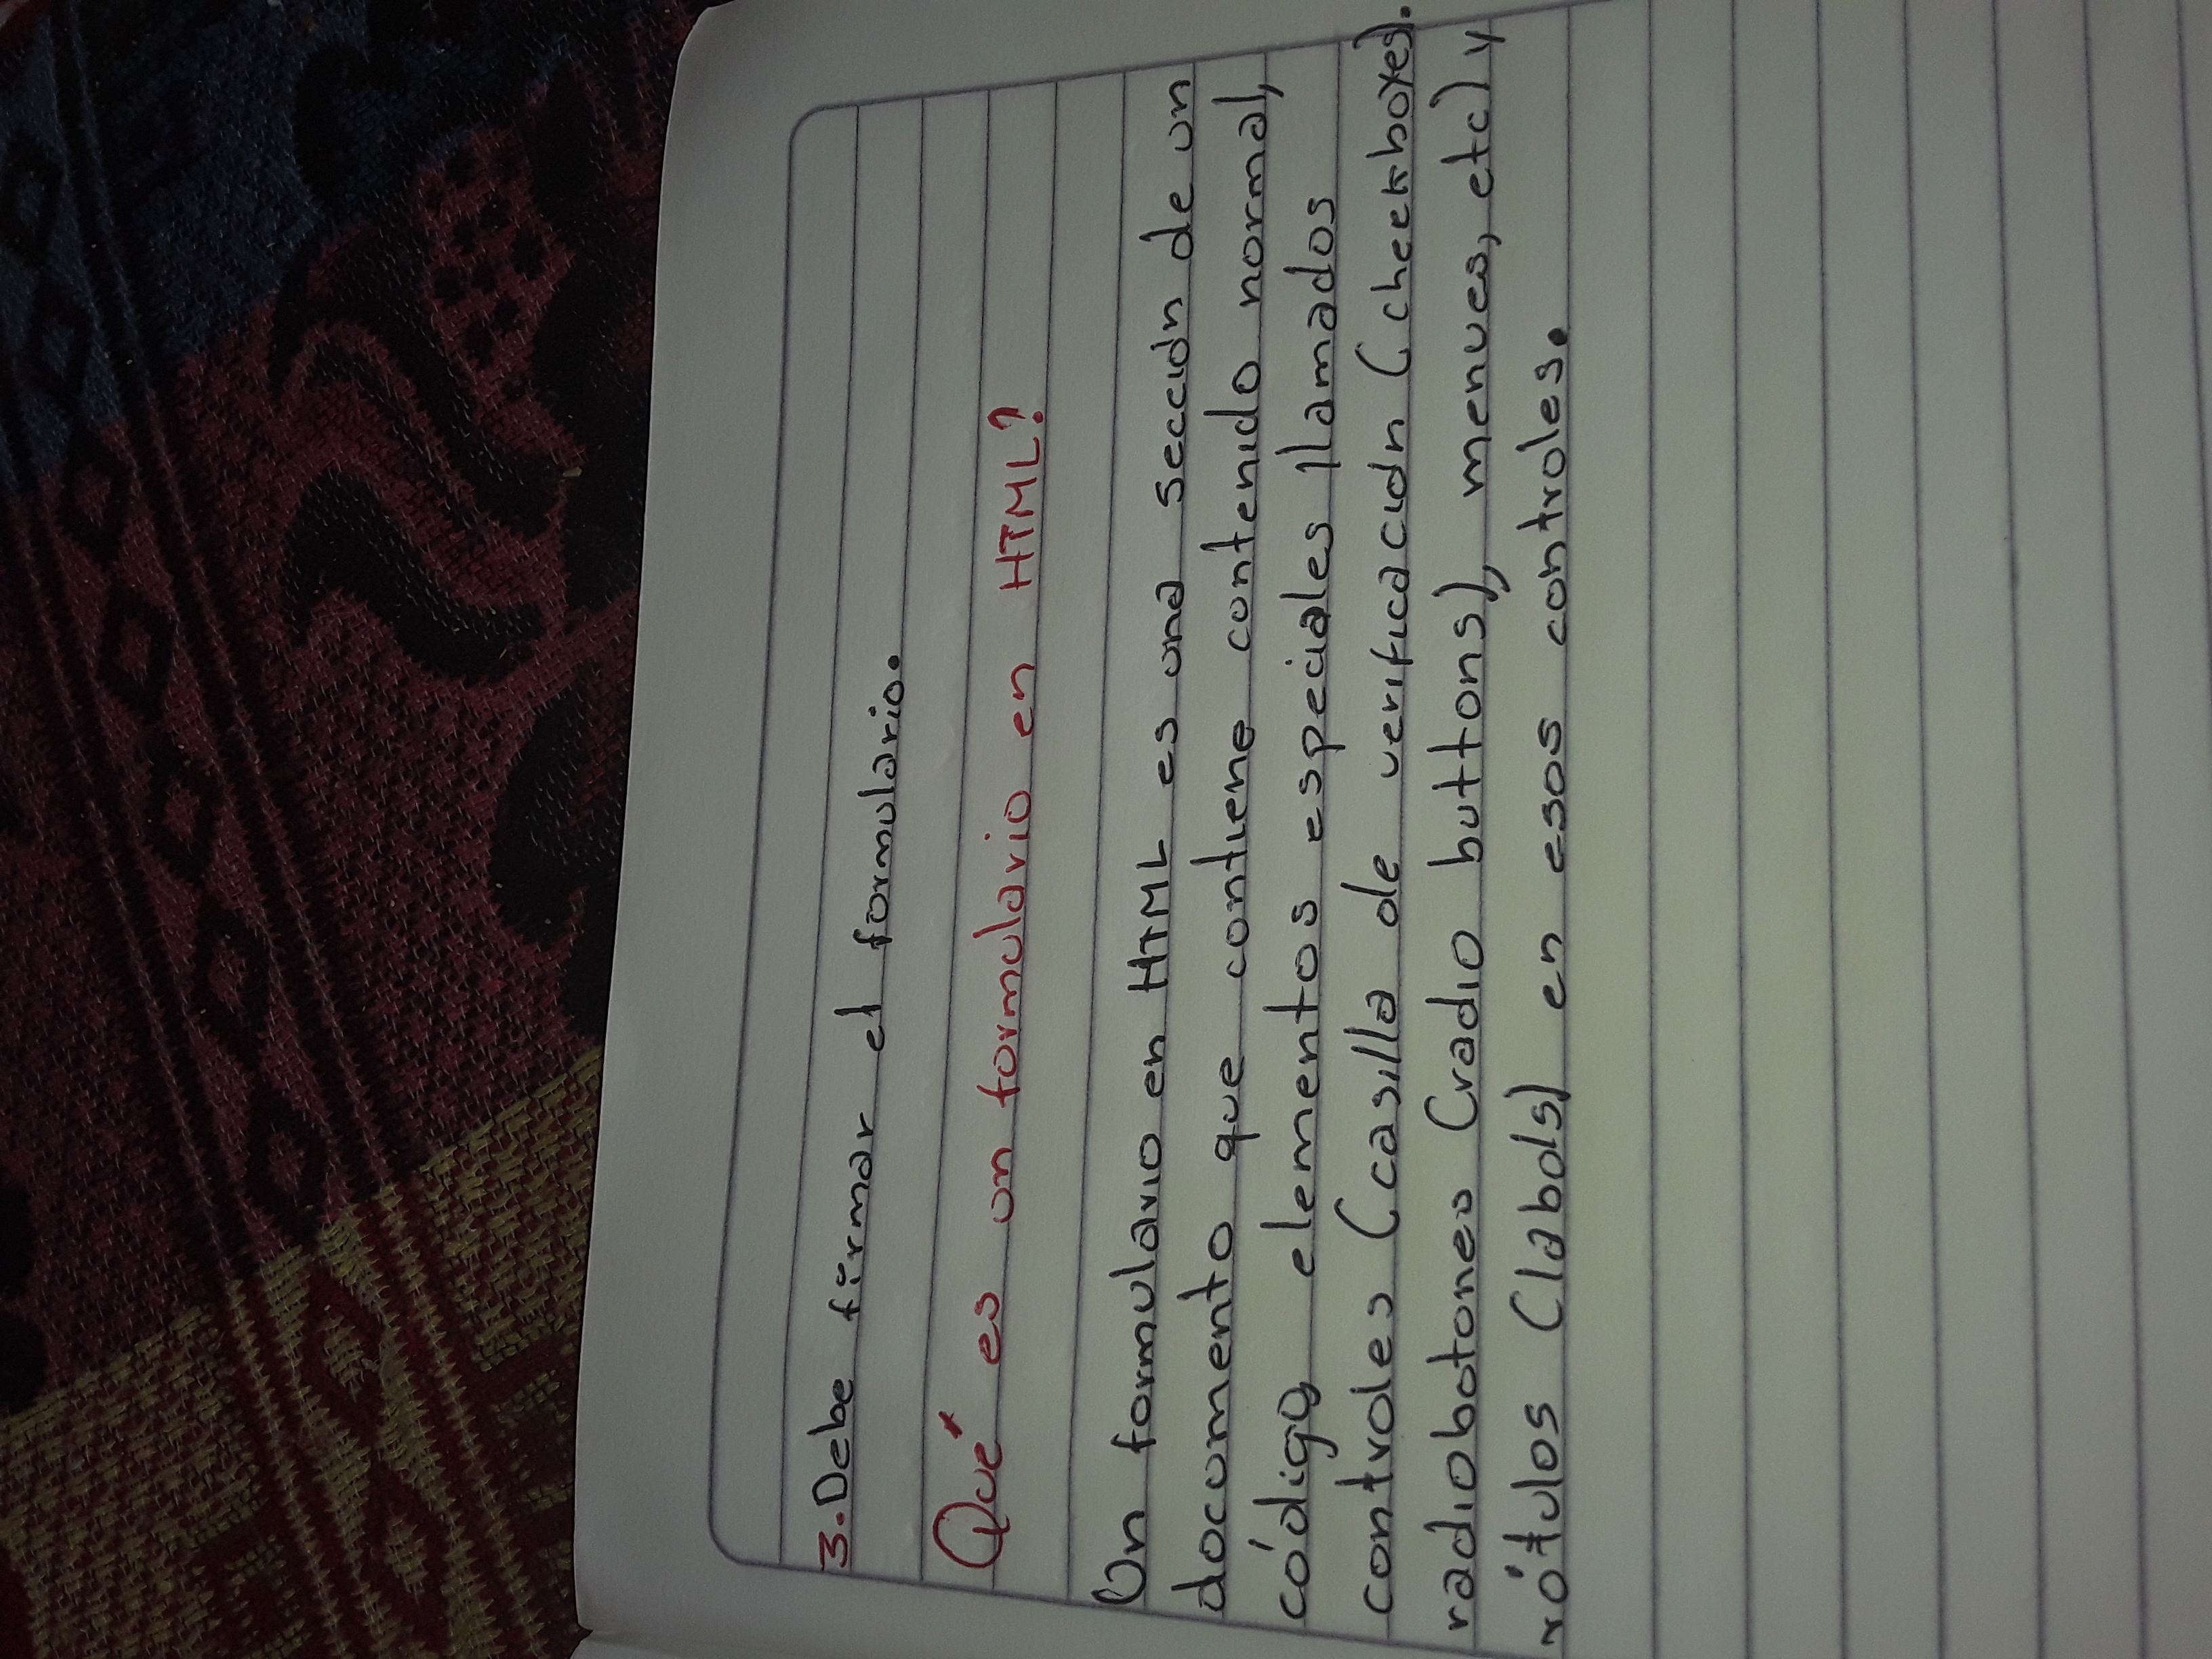 3. Debe firmar el formulario.
Qué es un formulario en HTML?
Un formulario en HTML es una sección de un
documento que contiene contenido normal,
código, elementos especiales llamados
controles (casilla de verificación (checkboxes).
radiobotones (radio buttons), menues, etc) y
rótulos (labols) en esos controles.